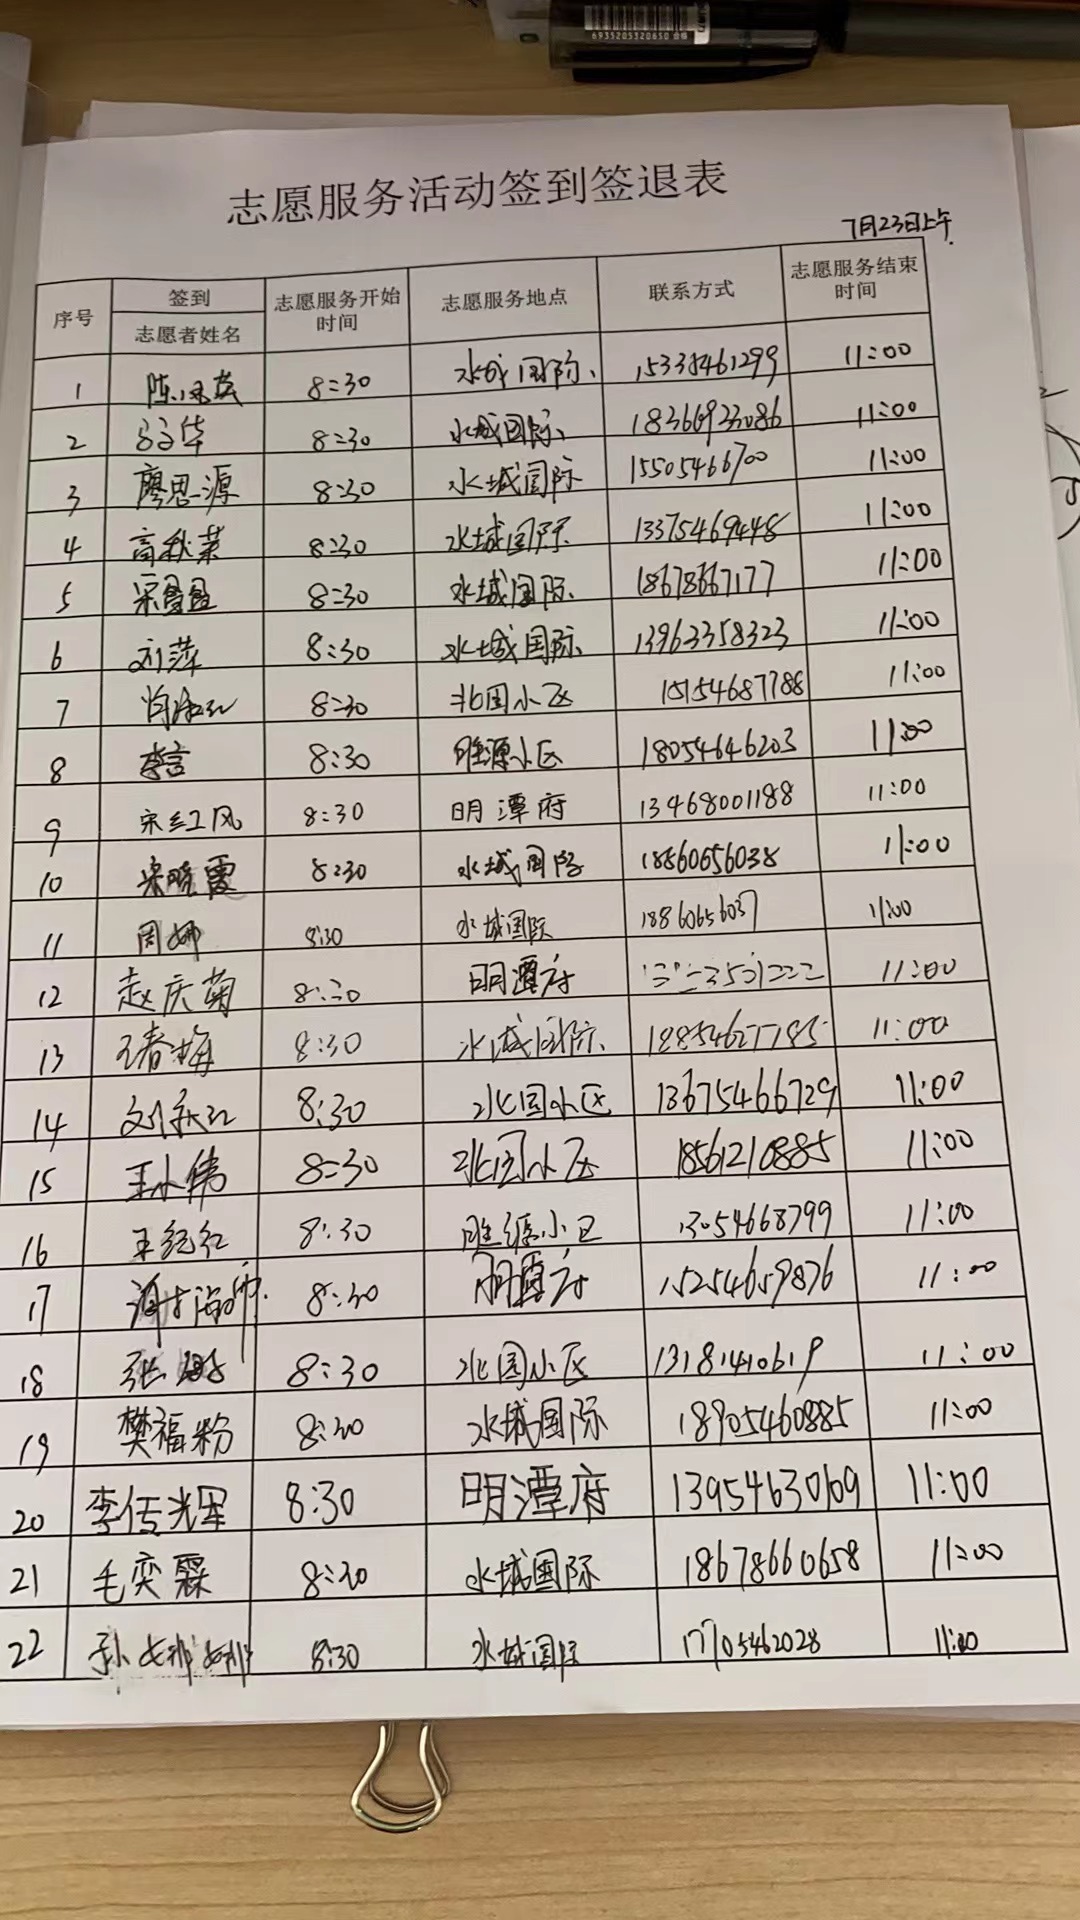 6935205320650
志愿服务活动签到签退表
7月23日上午
序号 签到 志愿者姓名 志愿服务开始时间 志愿服务地点 联系方式 志愿服务结束时间
1 8:30 水城国际 15335461299 11:00
2 8:30 水城国际 18366923086 11:00
3 廖思源 8:30 水城国际 15505466700 11:00
4 高秋菜 8:30 水城国际 13375469448 11:00
5 宋盈盈 8:30 水城国际 18678667177 11:00
6 刘萍 8:30 水城国际 13963358323 11:00
7 8:30 北国小区 15154687788 11:00
8 李言 8:30 胜源小区 18054646203 11:00
9 宋红风 8:30 明潭府 13468001188 11:00
10 宋晓霞 8:30 水城国际 18860656038 11:00
11 周娜 8:30 水城国际 18860656037 11:00
12 赵庆菊 8:30 明潭府 11:00
13 王春梅 8:30 水城国际 18854627785 11:00
14 8:30 北国小区 13675466729 11:00
15 王小伟 8:30 北国小区 18561210885 11:00
16 王纪红 8:30 胜源小区 13054668799 11:00
17 8:30 明潭府 15254659876 11:00
18 张 8:30 北国小区 13181410619 11:00
19 樊福粉 8:30 水城国际 18905460885 11:00
20 李传光军 8:30 明潭府 13954630169 11:00
21 毛奕霖 8:30 水城国际 18678660658 11:00
22 孙娜娜 8:30 水城国际 17705462028 11:00